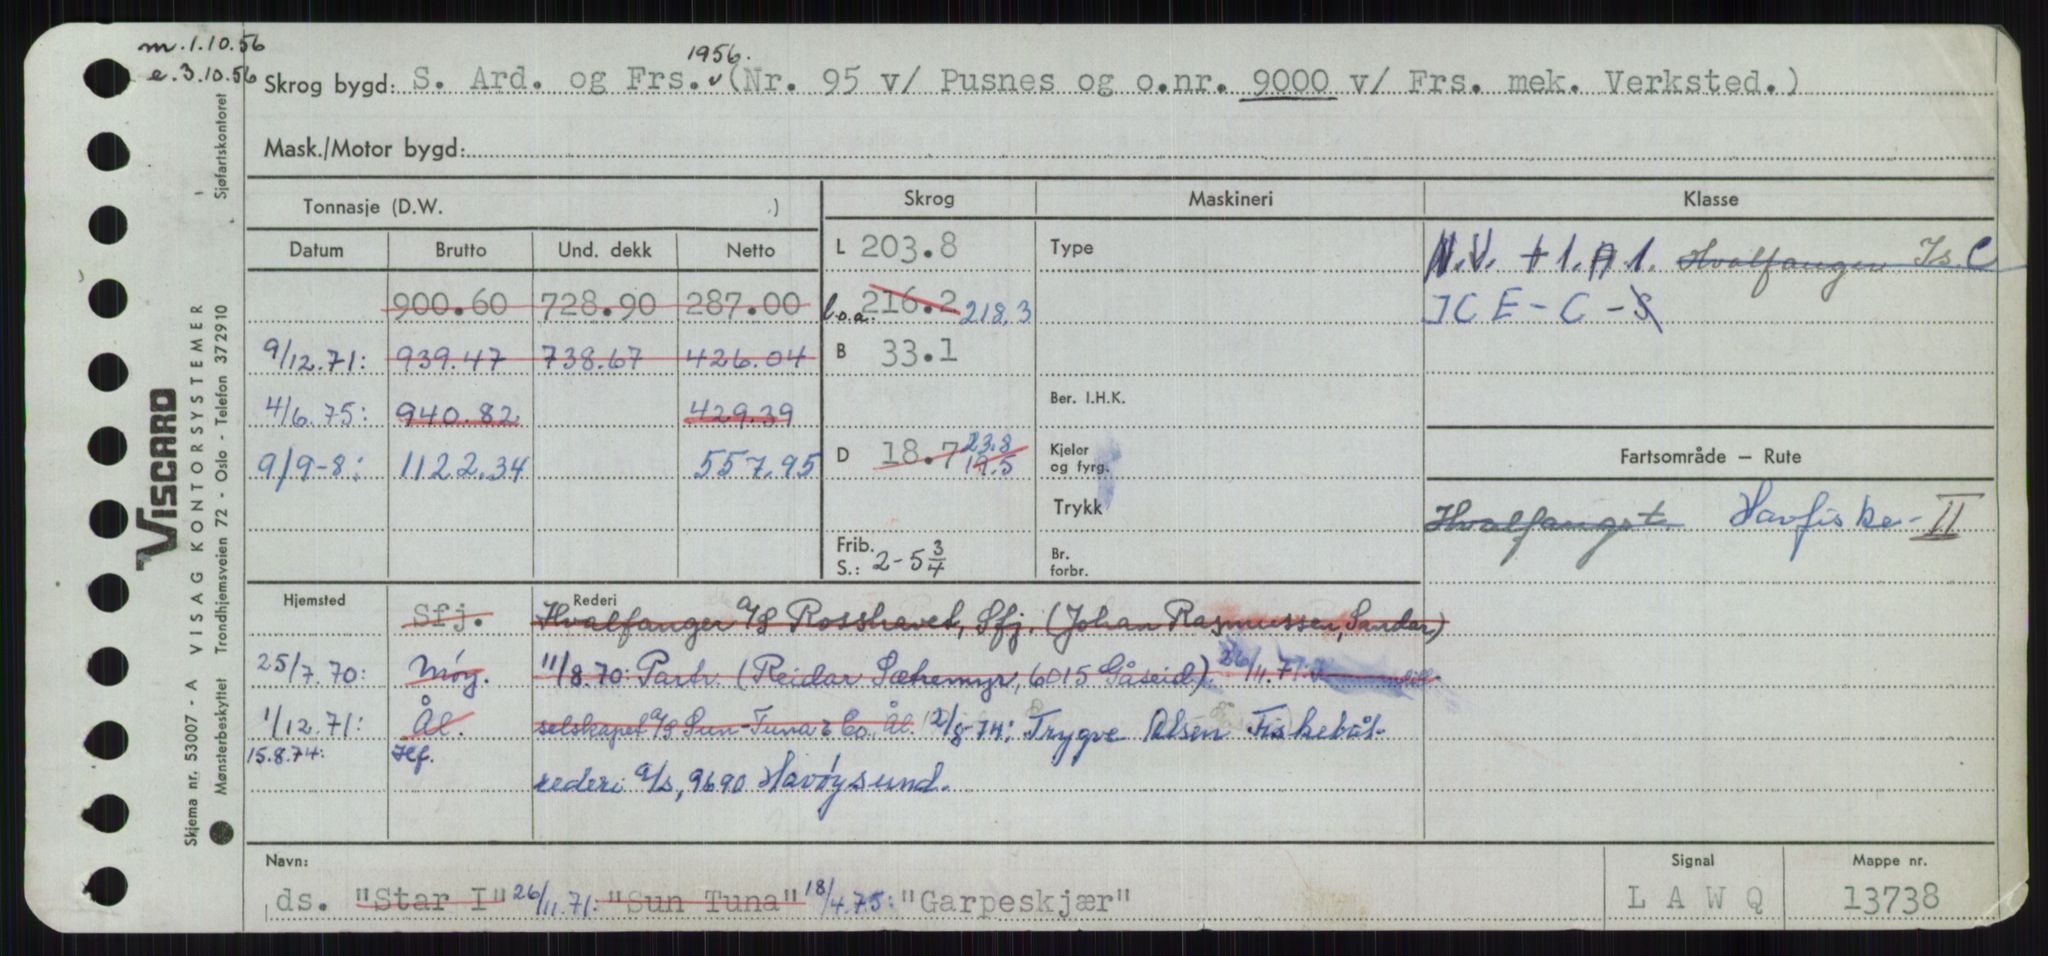 m.1.10.56
e.3.10.56
1956.
Skrog bygd: S. Ard. og Frs. (Nr. 95 v/ Pusnes og o.nr. 9000 v/ Frs. mek. Verksted.)
Mask./Motor bygd:
Tonnasje (D.W. )
Skrog Maskineri Klasse
Datum Brutto Und. dekk Netto
L 203.8 Type
N.V. +1.A.1. Hvalfanger Is.C
900.60 728.90 287.00
l.o.a. 216.2 218.3
ICE-C-S
9/12.71: 939.47 738.67 426.04
B 33.1
4/6.75: 940.82 429.39
Ber. I.H.K.
9/9-8: 1122.34 557.95
D 18.7 23.8 19.5
Kjeler og fyrg.
Fartsområde — Rute
Trykk
Hvalfangst Havfiske-II
Frib. S.: 2-5 3/4
Br. forbr.
Hjemsted Rederi
Sfj. Hvalfanger A/S Rosshavet, Sfj. (Johan Rasmussen, Sandar)
25/7.70: Møy. 11/8.70: Partr. (Reidar Sætremyr, 6015 Gåseid) 26/11.71:
1/12.71: Ål. selskapet A/S Sun-Tuna & Co. Ål. 12/8-74: Trygve Olsen Fiskebåt-
15.8.74: Hf.
rederi A/S, 9690 Havøysund.
Navn: Signal Mappe nr.
ds. "Star I" 26/11.71: "Sun Tuna" 18/4.75: "Garpeskjær" LAWQ 13738
VISCARD
Skjema nr. 53007 - A VISAG KONTORSYSTEMER
Mønsterbeskyttet Trondhjemsveien 72 - Oslo - Telefon 372910 Sjøfartskontoret